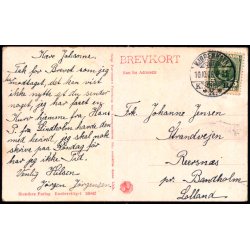 BREVKORT
Kun for Adressen
Kære Johanne.
Tak for Brevet som jeg
modtaget, det Men vist
ikke nytte at du senter
noget, jeg har faaet en
Kurv hjemme fra, Hans
P. fra Lindholm havde den
med herind, jeg skal nok
skrive paa Søndag for
har jeg ikke Tid.
Venlig Hilsen
Jörgen Jörgensen.
Frk. Johanne Jensen
Strandvejen
Reersnæs
pr. Bandholm
Lolland